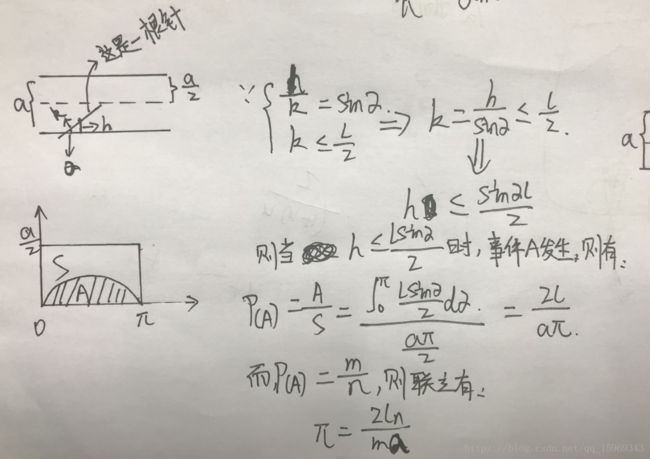 这是一根针
a
a/2
h
a
∵ { h/k = sin2.
k ≤ L/2
⇒ k = h/sin2 ≤ L/2.
⇓
h ≤ sin2L/2
则当 h ≤ Lsin2/2 时，事件A发生，则有：
a/2
S
A
0
π
P(A) = A/S = ∫₀^π Lsin2/2 d2. / aπ/2 = 2L/aπ.
而P(A) = m/n，则联立有：
π = 2Ln/ma
a
https://blog.csdn.net/qq_15969343